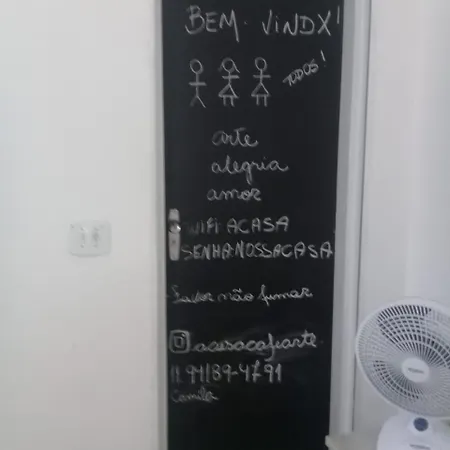 BEM-VINDX!
TODOS!
arte
alegria
amor
WIFI:ACASA
SENHA:NOSSACASA
-Favor não fumar
acasacafearte
11.94189-4791
Camila